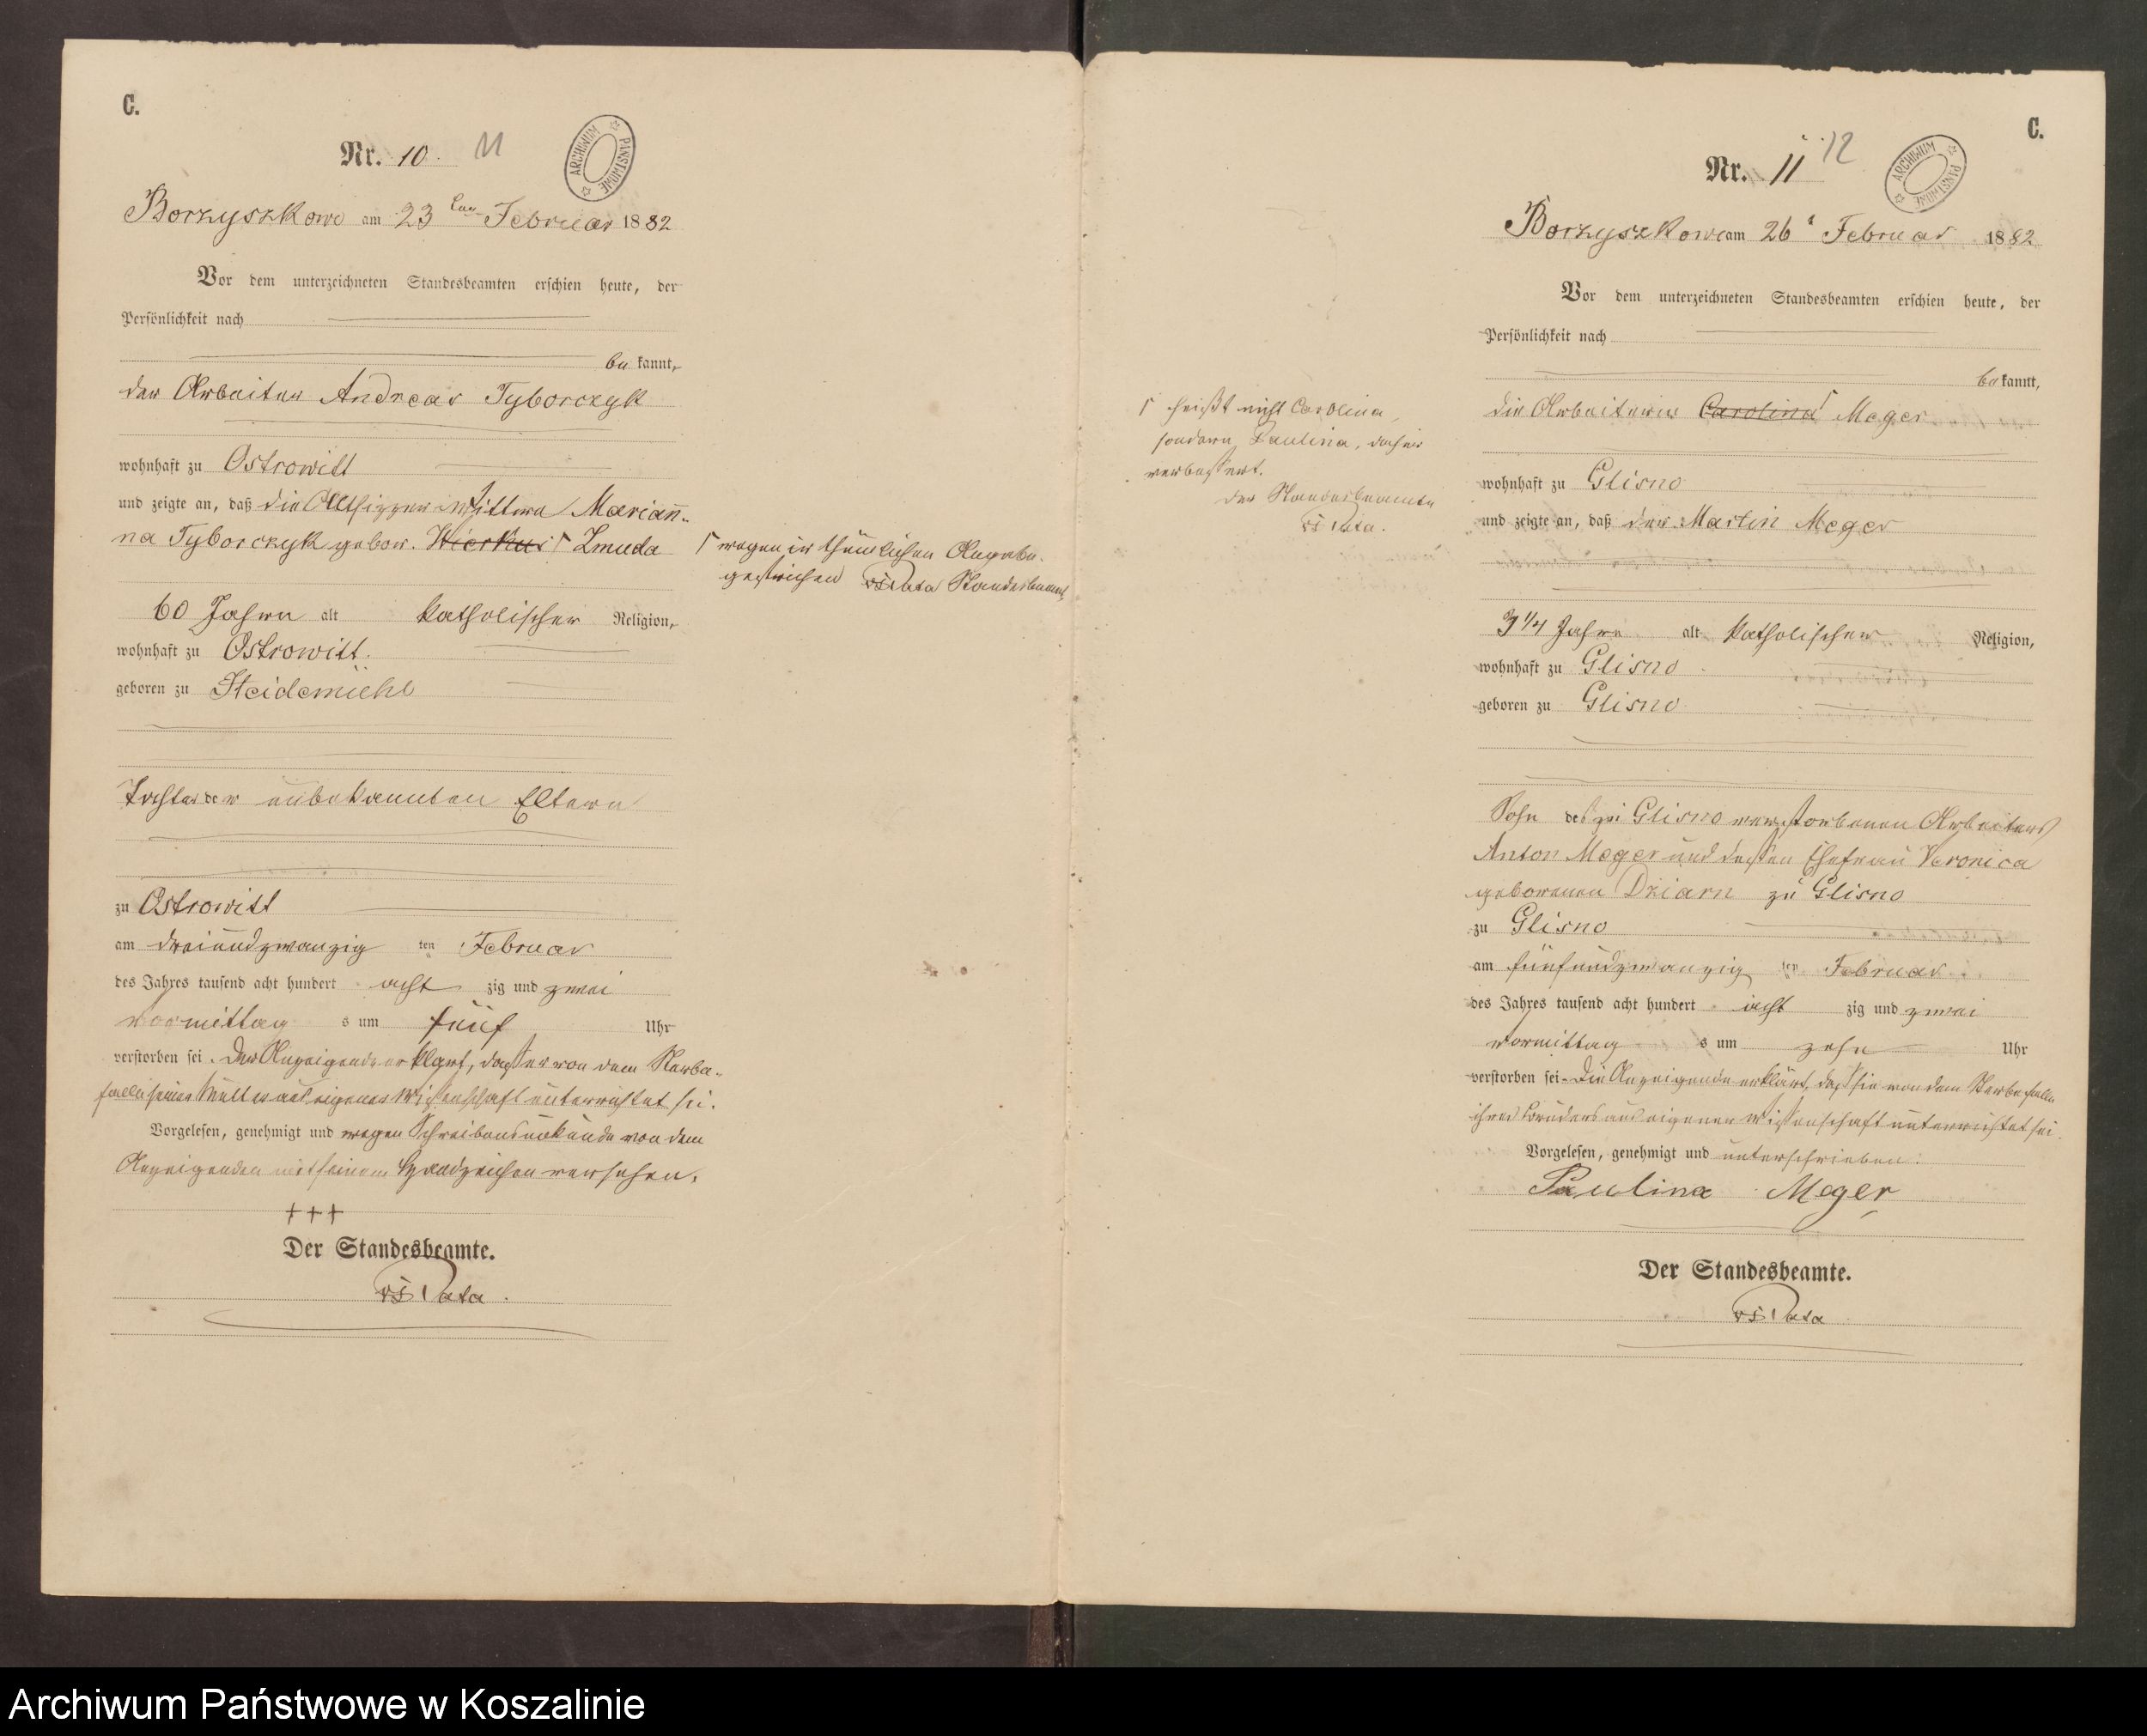 C.
Nr. 10. 11
ARCHIWUM PAŃSTWOWE
Borzyszkowo am 23ten Februar 1882
Vor dem unterzeichneten Standesbeamten erschien heute, der
Persönlichkeit nach
be kannt,
der Arbeiter Andreas Tyborczyk
wohnhaft zu Ostrowitt
und zeigte an, daß die Altsitzer Wittwe Marian-
na Tyborczyk gebor. Wierkus Zmuda
60 Jahre alt katholischer Religion,
wohnhaft zu Ostrowitt.
geboren zu Heidemühl
Tochter der unbekannten Eltern
zu Ostrowitt
am dreiundzwanzig ten Februar
des Jahres tausend acht hundert acht zig und zwei
vormittag s um fünf Uhr
verstorben sei. Der Anzeigende erklärt, daß er von dem Sterbe-
falle seiner Mutter aus eigener Wissenschaft unterrichtet sei.
Vorgelesen, genehmigt und wegen Schreibensunkunde von dem
Anzeigenden mit seinem Handzeichen versehen.
+++
Der Standesbeamte.
Pata.
wegen irrthümlicher Angabe
gestrichen Pata Standesbeamt
C.
Nr. 11 12
ARCHIWUM PAŃSTWOWE
Borzyszkowo am 26t Februar 1882
Vor dem unterzeichneten Standesbeamten erschien heute, der
Persönlichkeit nach
be kannt,
die Arbeiterin Carolina Meger
wohnhaft zu Glisno
und zeigte an, daß der Martin Meger
3 1/4 Jahre alt katholischer Religion,
wohnhaft zu Glisno
geboren zu Glisno
Sohn des zu Glisno verstorbenen Arbeiters
Anton Meger und dessen Ehefrau Veronica
geborenen Dziarn zu Glisno
zu Glisno
am fünfundzwanzig ten Februar
des Jahres tausend acht hundert acht zig und zwei
vormittag s um zehn Uhr
verstorben sei. Die Anzeigende erklärt, daß sie von dem Sterbefalle
ihres Bruders aus eigener Wissenschaft unterrichtet sei.
Vorgelesen, genehmigt und unterschrieben.
Paulina Meger
Der Standesbeamte.
Pata
heißt nicht Carolina,
sondern Paulina, daher
verbessert.
Der Standesbeamte
Pata.
Archiwum Państwowe w Koszalinie